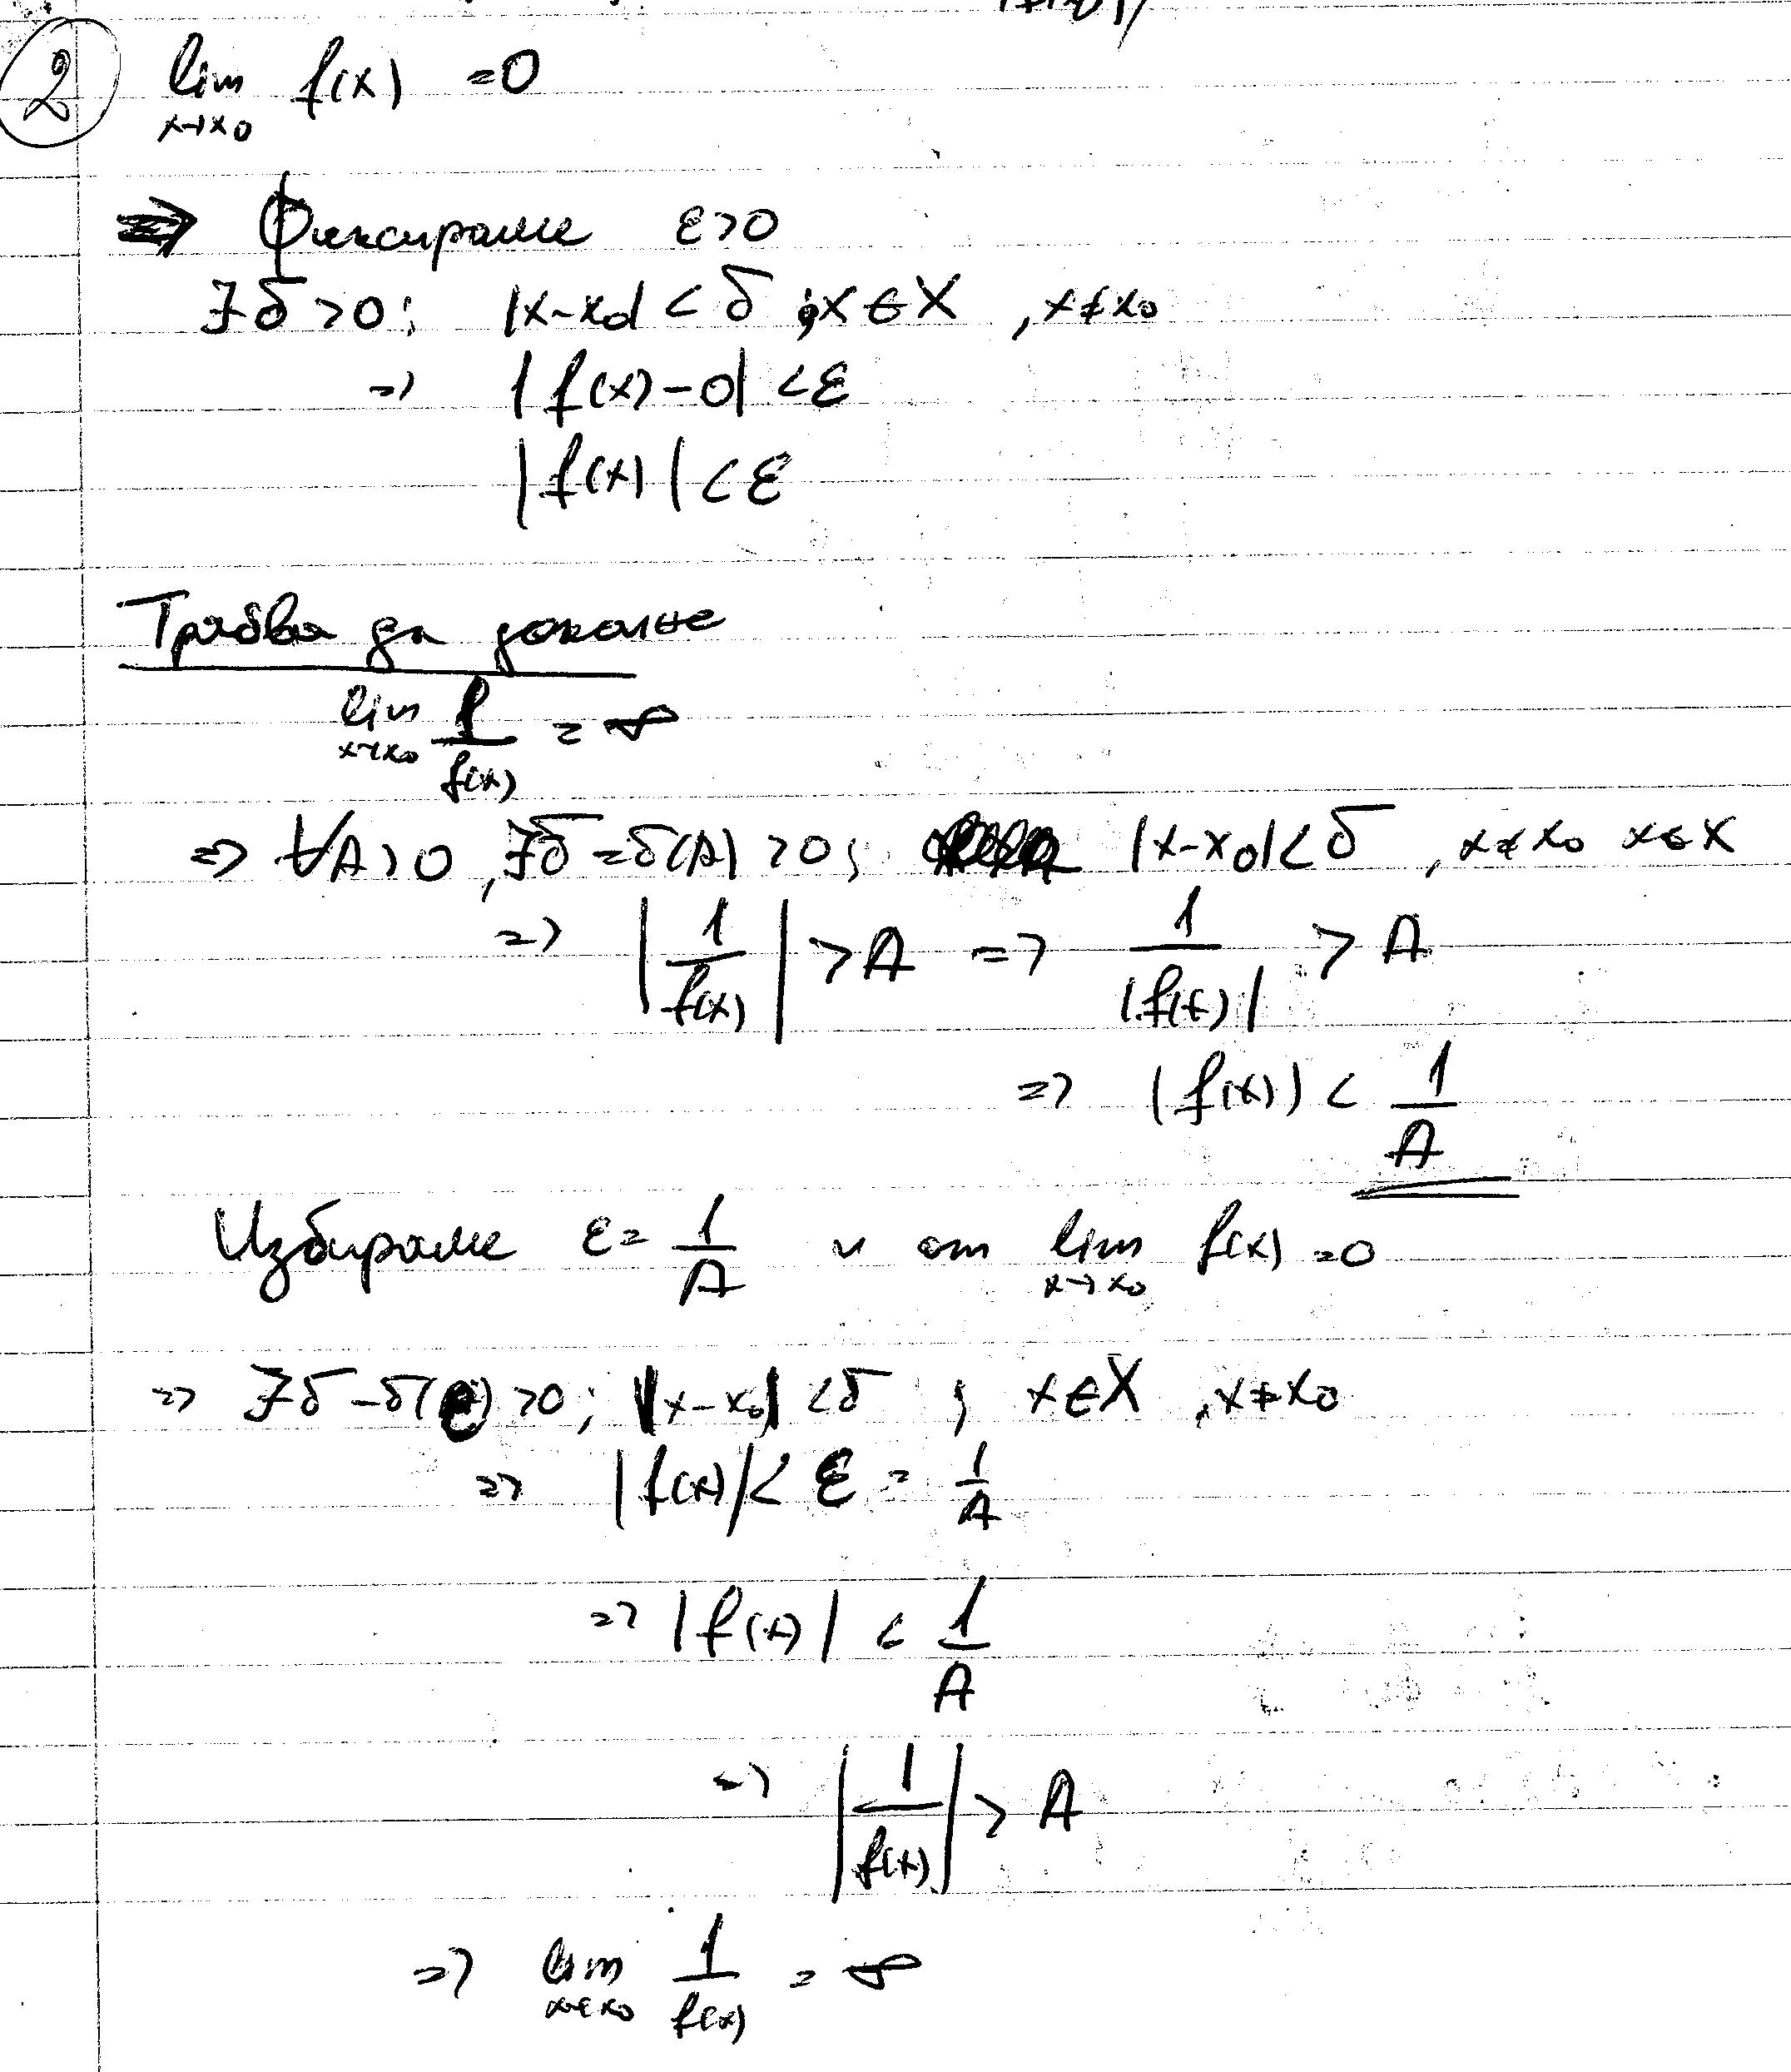 2 lim f(x) = 0
x→x₀
⇒ Фиксираме ε>0
∃δ>0; |x-x₀| < δ ; x∈X , x≠x₀
⇒ |f(x)-0| < ε
|f(x)| < ε
Трябва да докажа
lim 1/f(x) = ∞
x→x₀
⇒ ∀A>0, ∃δ=δ(A)>0; |x-x₀|<δ , x≠x₀ x∈X
⇒ |1/f(x)| > A ⇒ 1/|f(x)| > A
⇒ |f(x)| < 1/A
Избираме ε = 1/A и от lim f(x) = 0
x→x₀
⇒ ∃δ=δ(ε)>0; |x-x₀| < δ ; x∈X , x≠x₀
⇒ |f(x)| < ε = 1/A
⇒ |f(x)| < 1/A
⇒ |1/f(x)| > A
⇒ lim 1/f(x) = ∞
x→x₀